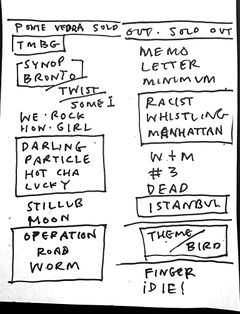 PONTE VEDRA SOLD OUT. SOLD OUT
TMBG
SYNOP
BRONTO
TWIST
SOME I
WE·ROCK
HOW·GIRL
DARLING
PARTICLE
HOT CHA
LUCKY
STILLUB
MOON
OPERATION
ROAD
WORM
MEMO
LETTER
MINIMUM
RACIST
WHISTLING
MANHATTAN
W+M
#3
DEAD
ISTANBUL
THEME/
BIRD
FINGER
iDIE!